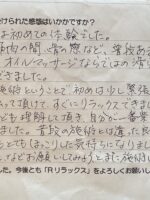 けられた感想はいかがですか？
は初めての体験でした。
間、
の際など、普段ある
オイルマッサージならではの滑ら
できました。
施術ということで初めは少し緊張
って頂けて、すぐにリラックスできまし
も理解して頂き、自分が一番
ました。普段の施術とは違った良
とてもほっこりした気持ちになりまし
てはお願いしてみようと
施術
した。今後とも「Rリラックス」をよろしくお願い